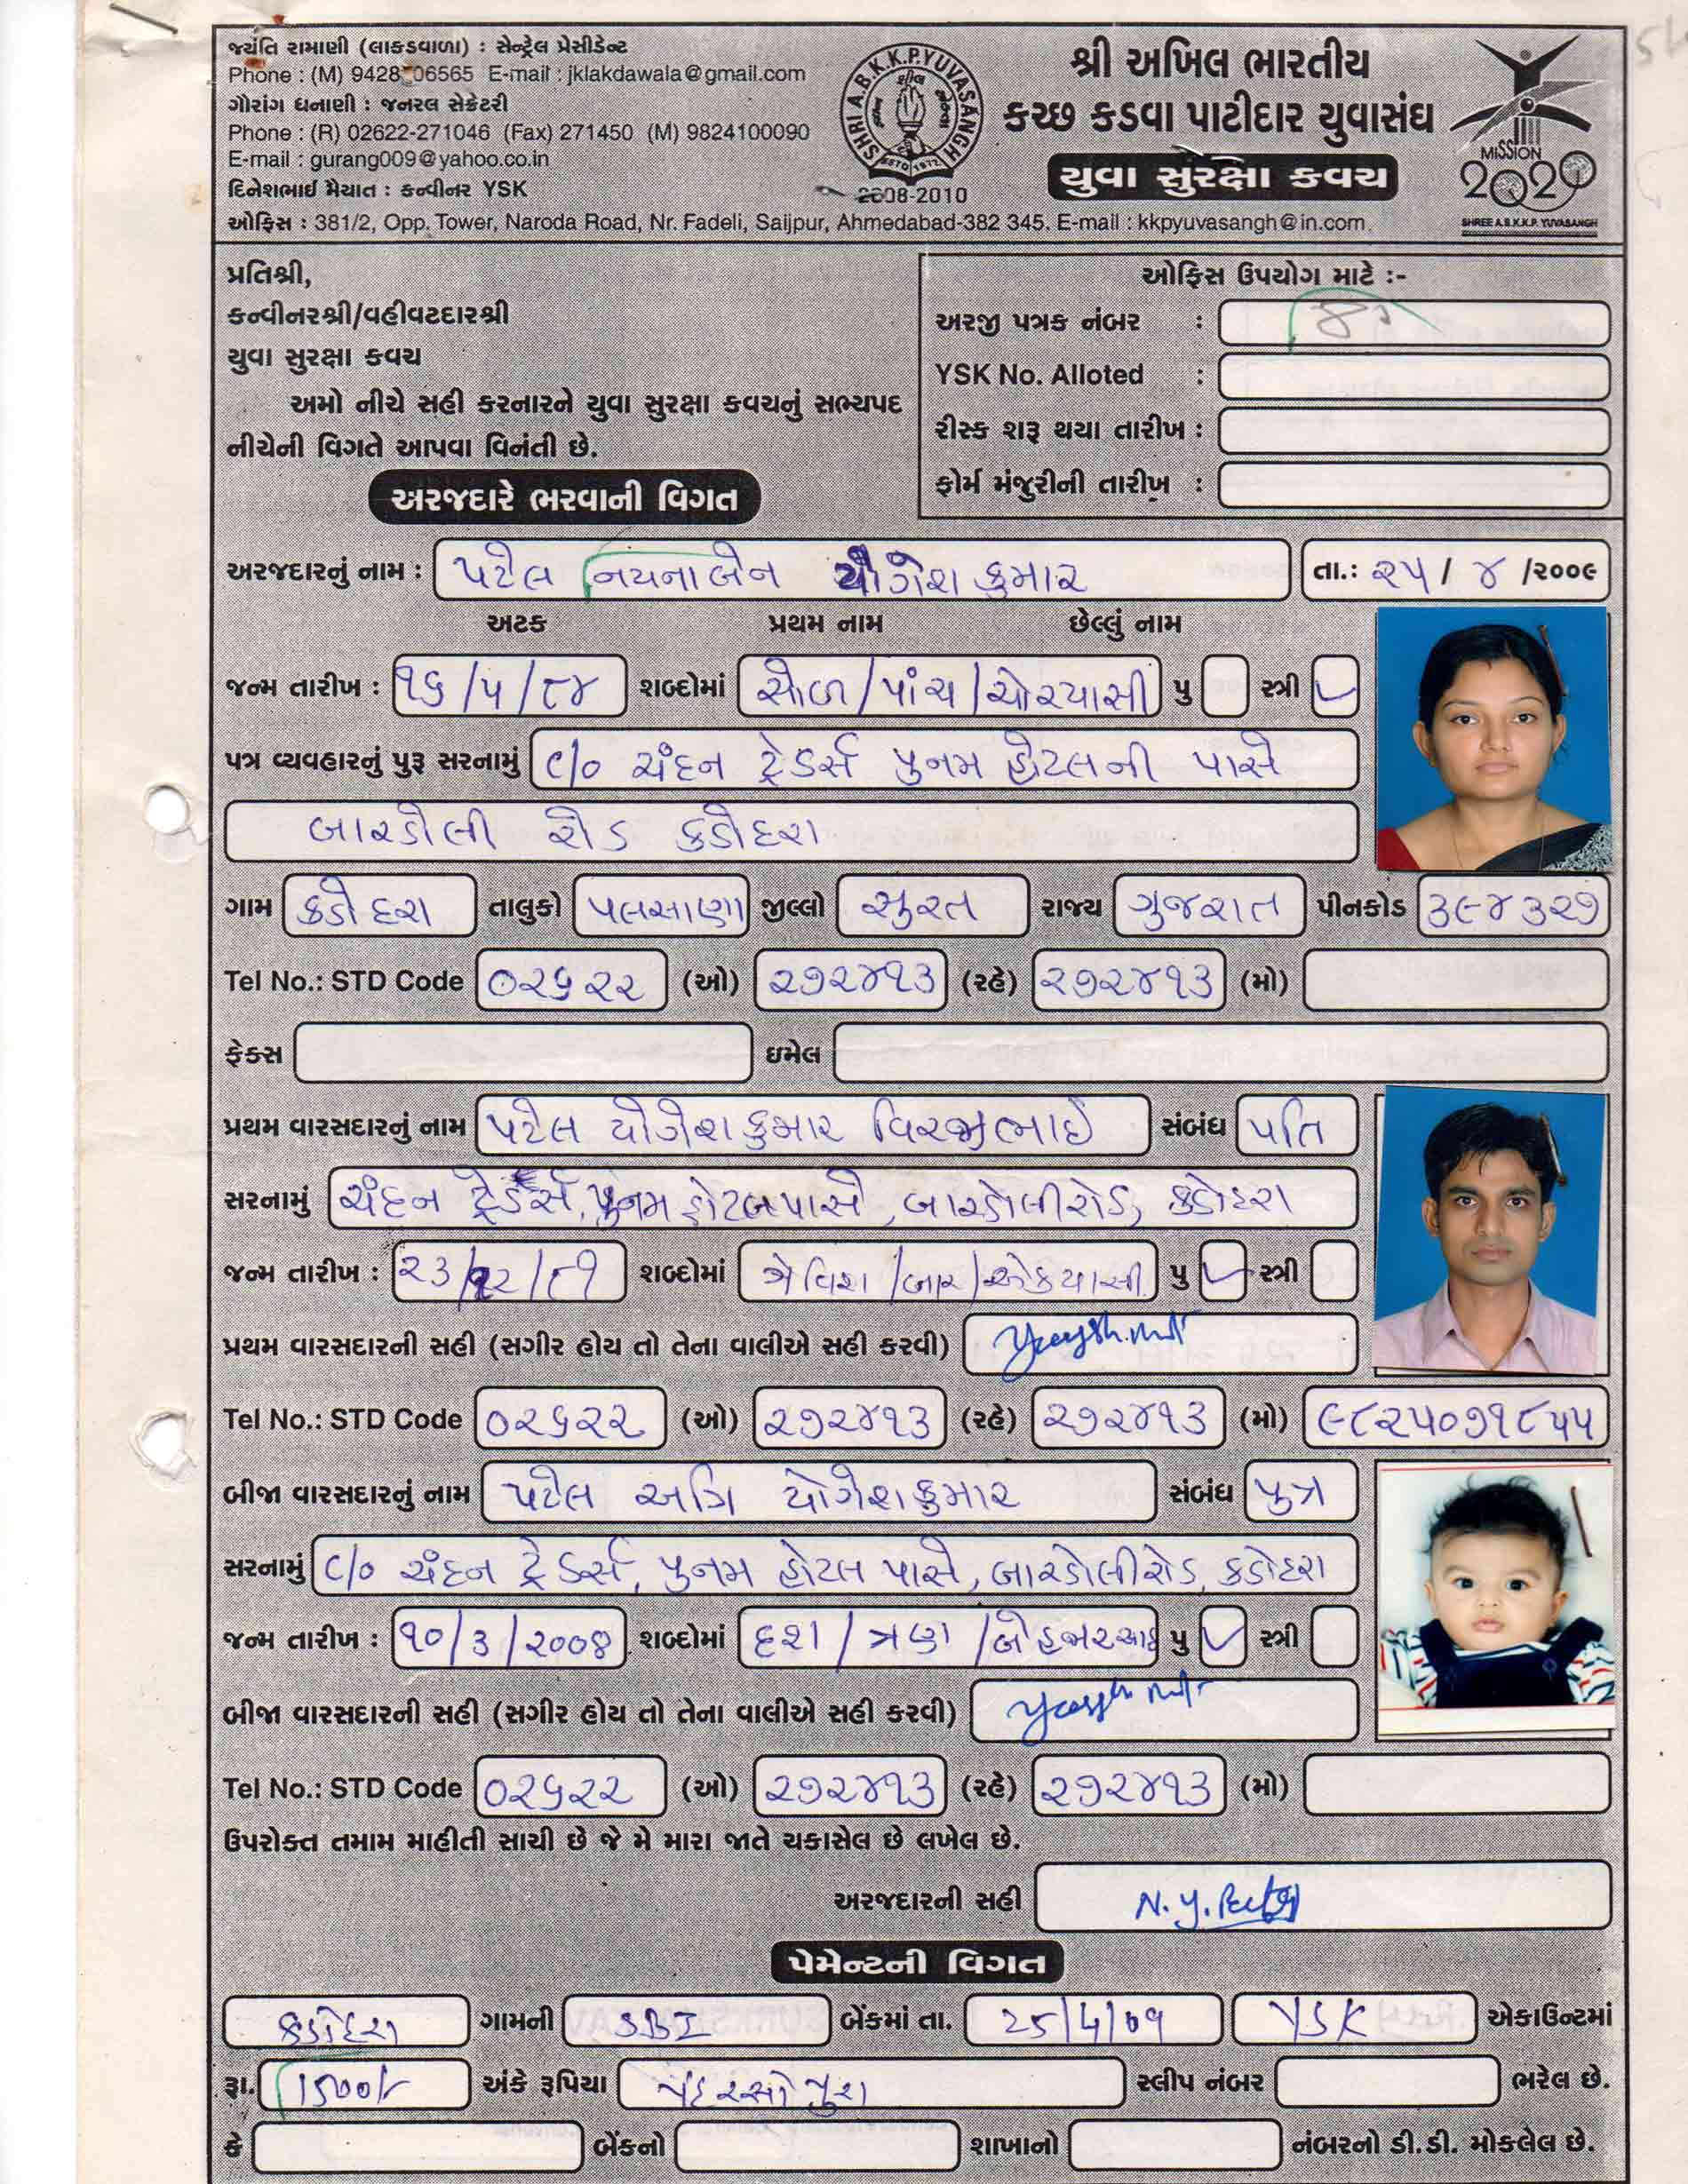 જયંતિ રામાણી (લાકડાવાળા) : સેન્ટ્રેલ પ્રેસીડેન્ટ
Phone : (M) 9428 06565 E-mail : jklakdawala@gmail.com
ગૌરાંગ ધનાણી : જનરલ સેક્રેટરી
Phone : (R) 02622-271046 (Fax) 271450 (M) 9824100090
E-mail : gurang009@yahoo.co.in
દિનેશભાઈ મૈયાત : કન્વીનર YSK
SHRI A.B.K.K.P.YUVASANGH
ESTD 1972
2008-2010
શ્રી અખિલ ભારતીય
કચ્છ કડવા પાટીદાર યુવાસંઘ
યુવા સુરક્ષા કવચ
MISSION
2020
SHREE A.B.K.K.P. YUVASANGH
ઓફિસ : 381/2, Opp. Tower, Naroda Road, Nr. Fadeli, Saijpur, Ahmedabad-382 345. E-mail : kkpyuvasangh@in.com.
પ્રતિશ્રી,
કન્વીનરશ્રી/વહીવટદારશ્રી
યુવા સુરક્ષા કવચ
અમો નીચે સહી કરનારને યુવા સુરક્ષા કવચનું સભ્યપદ
નીચેની વિગતે આપવા વિનંતી છે.
ઓફિસ ઉપયોગ માટે :-
અરજી પત્રક નંબર :
YSK No. Alloted :
રીસ્ક શરૂ થયા તારીખ :
ફોર્મ મંજુરીની તારીખ :
અરજદારે ભરવાની વિગત
અરજદારનું નામ : પટેલ નયનાબેન યોગેશકુમાર તા.: ૨૫/ ૪ /૨૦૦૯
અટક પ્રથમ નામ છેલ્લું નામ
જન્મ તારીખ : ૧૬/૫/૮૪ શબ્દોમાં સોળ/પાંચ/ચોરયાસી પુ સ્ત્રી ✓
પત્ર વ્યવહારનું પુરૂ સરનામું c/o ચંદન ટ્રેડર્સ પુનમ હોટલની પાસે
બારડોલી રોડ કડોદરા
ગામ કડોદરા તાલુકો પલસાણા જીલ્લો સુરત રાજ્ય ગુજરાત પીનકોડ ૩૯૪૩૨૭
Tel No.: STD Code ૦૨૬૨૨ (ઓ) ૨૭૨૪૧૩ (રહે) ૨૭૨૪૧૩ (મો)
ફેક્સ ઇમેલ
પ્રથમ વારસદારનું નામ પટેલ યોગેશકુમાર વિરજીભાઈ સંબંધ પતિ
સરનામું ચંદન ટ્રેડર્સ, પુનમ હોટલ પાસે, બારડોલી રોડ, કડોદરા
જન્મ તારીખ : ૨૩/૧૨/૮૧ શબ્દોમાં ત્રેવિશ/બાર/એકયાસી પુ ✓ સ્ત્રી
પ્રથમ વારસદારની સહી (સગીર હોય તો તેના વાલીએ સહી કરવી)
Tel No.: STD Code ૦૨૬૨૨ (ઓ) ૨૭૨૪૧૩ (રહે) ૨૭૨૪૧૩ (મો) ૯૮૨૫૦૭૧૮૫૫
બીજા વારસદારનું નામ પટેલ અત્રિ યોગેશકુમાર સંબંધ પુત્ર
સરનામું c/o ચંદન ટ્રેડર્સ, પુનમ હોટલ પાસે, બારડોલી રોડ, કડોદરા
જન્મ તારીખ : ૧૦/૩/ શબ્દોમાં દશ/ત્રણ/ પુ ✓ સ્ત્રી
બીજા વારસદારની સહી (સગીર હોય તો તેના વાલીએ સહી કરવી)
Tel No.: STD Code ૦૨૬૨૨ (ઓ) ૨૭૨૪૧૩ (રહે) ૨૭૨૪૧૩ (મો)
ઉપરોક્ત તમામ માહીતી સાચી છે જે મે મારા જાતે ચકાસેલ છે લખેલ છે.
અરજદારની સહી N.Y.
પેમેન્ટની વિગત
કડોદરા ગામની SBI બેંકમાં તા. 25/4/09 YSK એકાઉન્ટમાં
રૂા. 1500/- અંકે રૂપિયા પંદરસો પુરા સ્લીપ નંબર ભરેલ છે.
કે બેંકનો શાખાનો નંબરનો ડી.ડી. મોકલેલ છે.